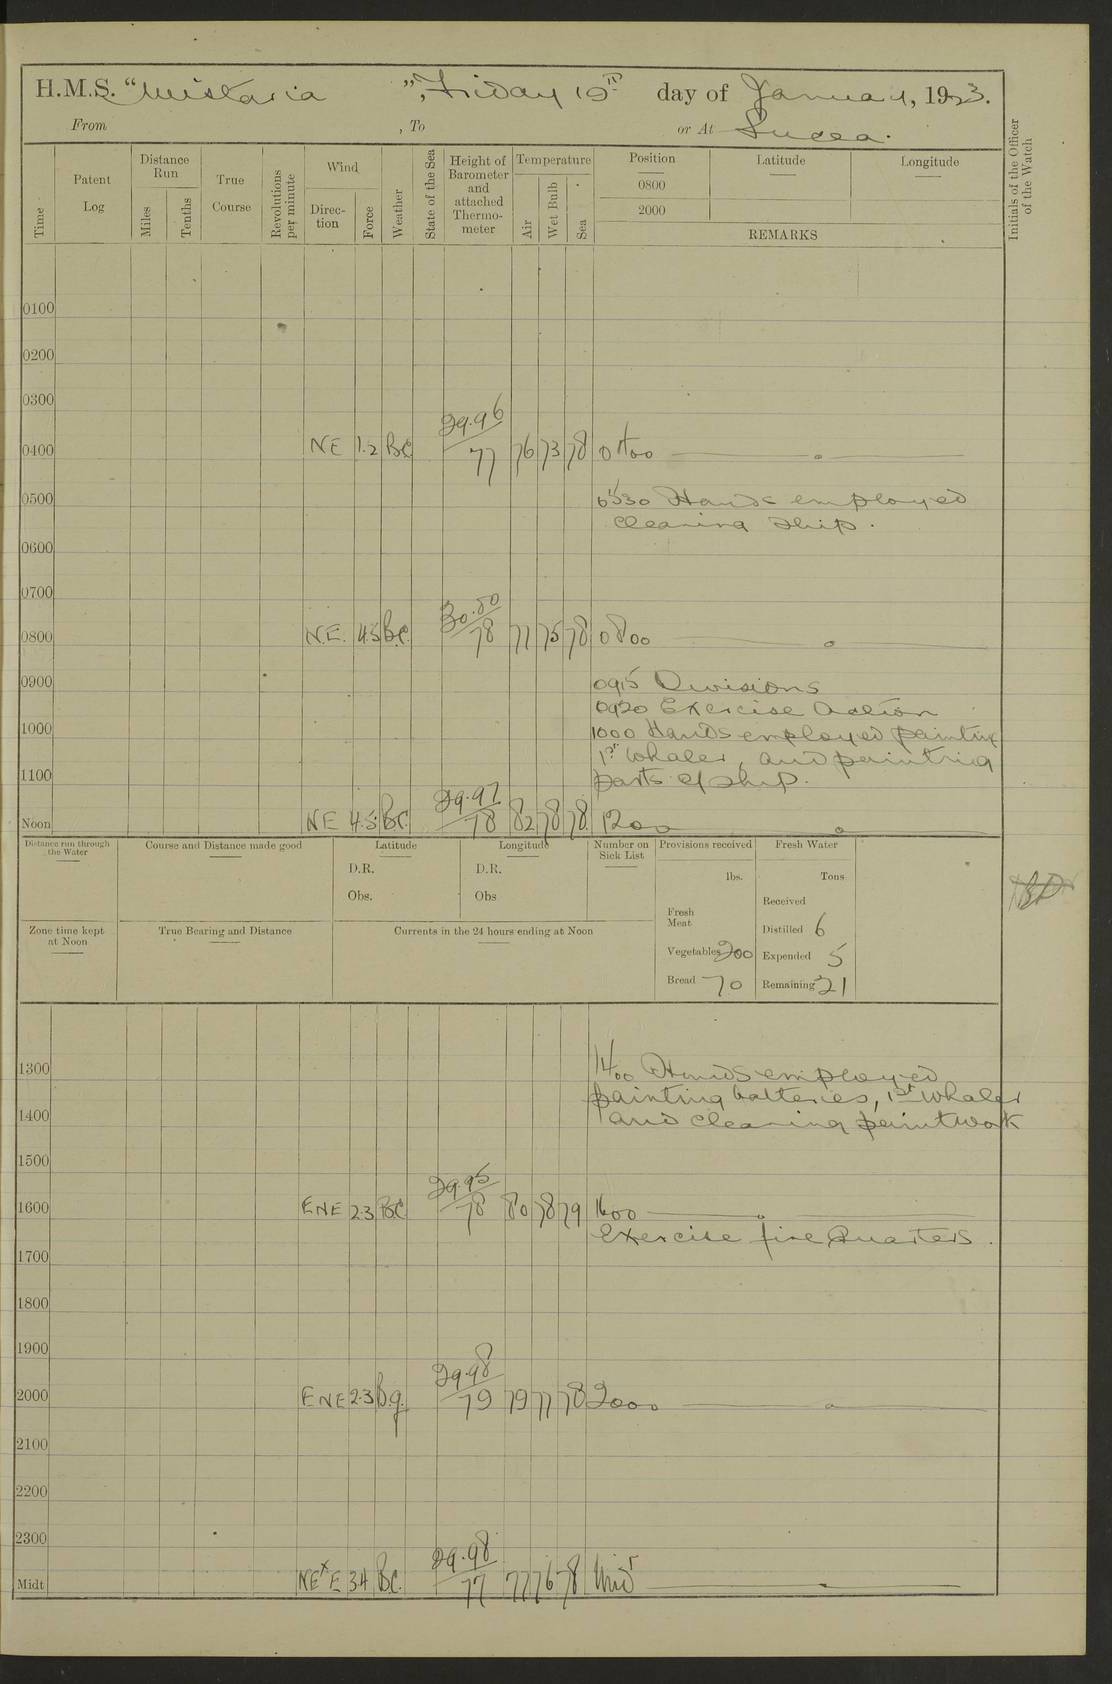 H.M.S. "Wistaria", Friday 19th day of January, 1923.
From , To or At Lucea.
Time
Patent Log
Distance Run
Miles
Tenths
True Course
Revolutions per minute
Wind
Direction
Force
Weather
State of the Sea
Height of Barometer and attached Thermometer
Temperature
Air
Wet Bulb
Sea
Position
0800
2000
Latitude
Longitude
REMARKS
Initials of the Officer of the Watch
0100
0200
0300
0400 NE 1.2 BC 29.96 77 76 73 78 0400
0500 0530 Hands employed
cleaning ship.
0600
0700
0800 N.E. 4.5 B.C. 78 77 75 78 0800
0900 0915 Divisions
0920 Exercise Action
1000 1000 Hands employed painting
1st Whaler, and painting
1100 parts of ship.
Noon NE 4.5 BC 29.97 78 82 78 78 1200
Distance run through the Water
Course and Distance made good
Latitude
D.R.
Obs.
Longitude
D.R.
Obs
Number on Sick List
Provisions received
lbs.
Fresh Meat
Vegetables 200
Bread 70
Fresh Water
Tons
Received
Distilled 6
Expended 5
Remaining 21
Zone time kept at Noon
True Bearing and Distance
Currents in the 24 hours ending at Noon
1300 1400 Hands employed
painting batteries, 1st Whaler
1400 and cleaning paintwork
1500
1600 ENE 2.3 BC 29.95 78 80 78 79 1600
Exercise fire Quarters.
1700
1800
1900
2000 ENE 2.3 B.g. 29.98 79 79 77 78 2000
2100
2200
2300
Midt NExE 34 BC. 29.98 77 77 76 78 Midt